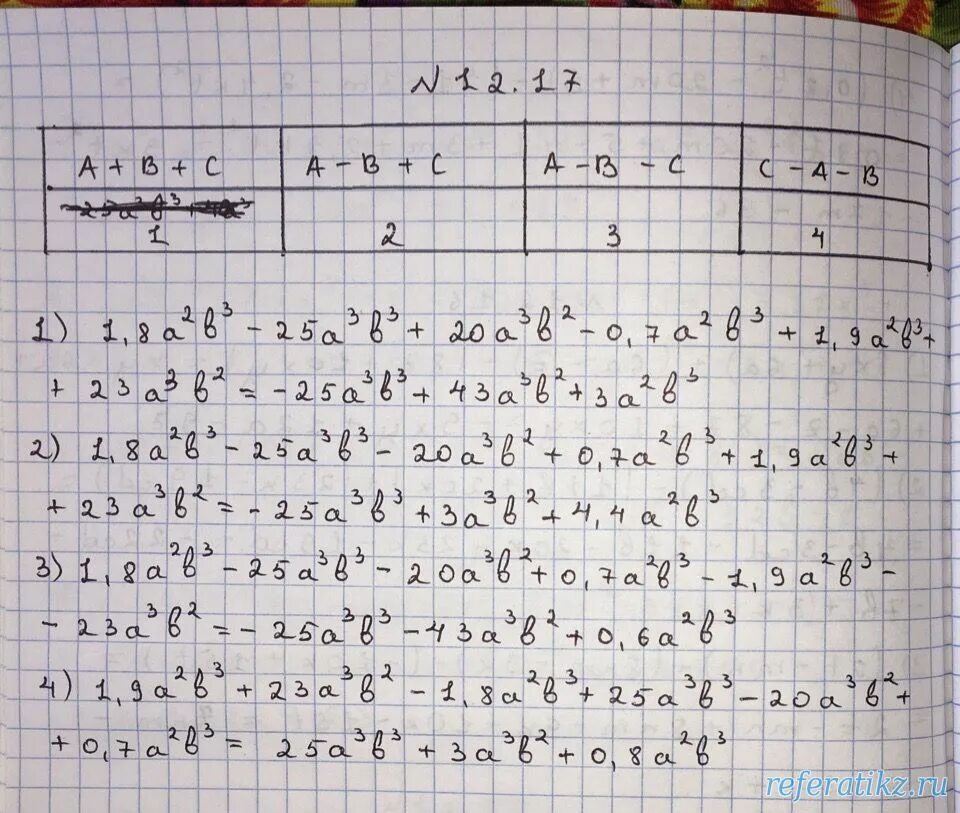 N 12.17
A + B + C | A - B + C | A - B - C | C - A - B
1 | 2 | 3 | 4
1) 1,8a²b³ - 25a³b³ + 20a³b² - 0,7a²b³ + 1,9a²b³ +
+ 23a³b² = -25a³b³ + 43a³b² + 3a²b³
2) 1,8a²b³ - 25a³b³ - 20a³b² + 0,7a²b³ + 1,9a²b³ +
+ 23a³b² = -25a³b³ + 3a³b² + 4,4a²b³
3) 1,8a²b³ - 25a³b³ - 20a³b² + 0,7a²b³ - 1,9a²b³ -
- 23a³b² = - 25a³b³ - 43a³b² + 0,6a²b³
4) 1,9a²b³ + 23a³b² - 1,8a²b³ + 25a³b³ - 20a³b² +
+ 0,7a²b³ = 25a³b³ + 3a³b² + 0,8a²b³
referatikz.ru